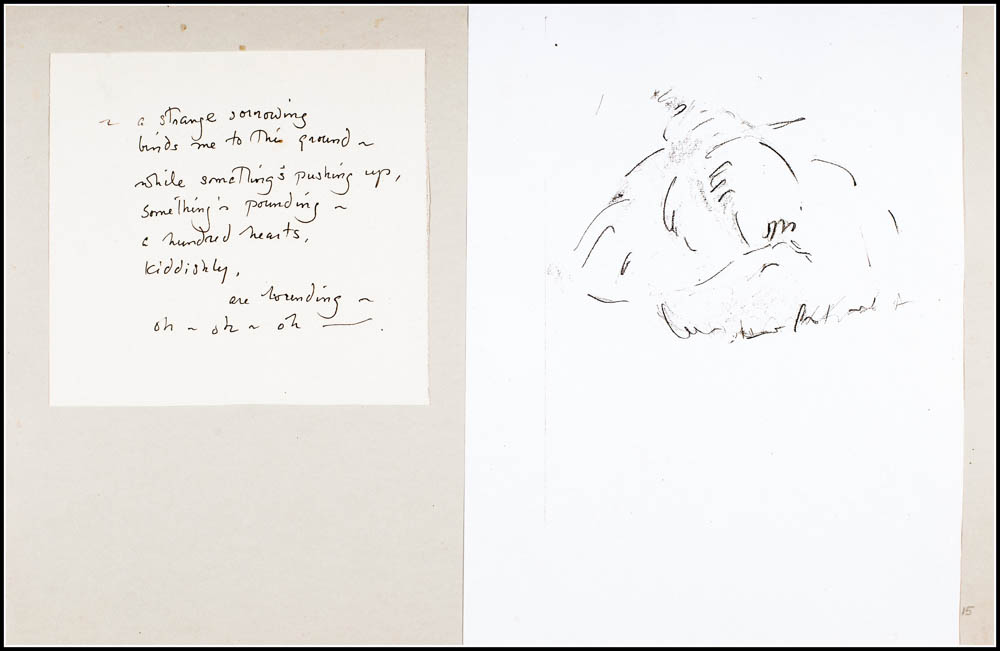 ~ a strange sorrowing
binds me to this ground ~
while something's pushing up,
something's pounding ~
a hundred hearts,
kiddishly,
are bounding ~
oh ~ oh ~ oh —.
15